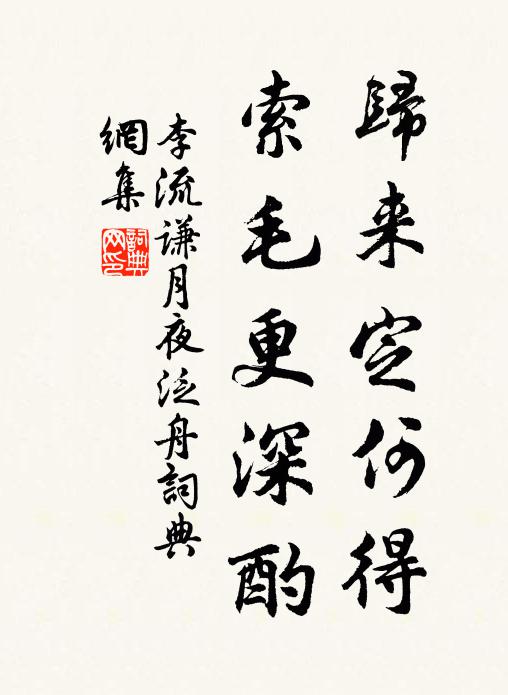 歸来定何得
索毛更深酌
李流謙月夜泛舟詞典
網集
詞典
网印